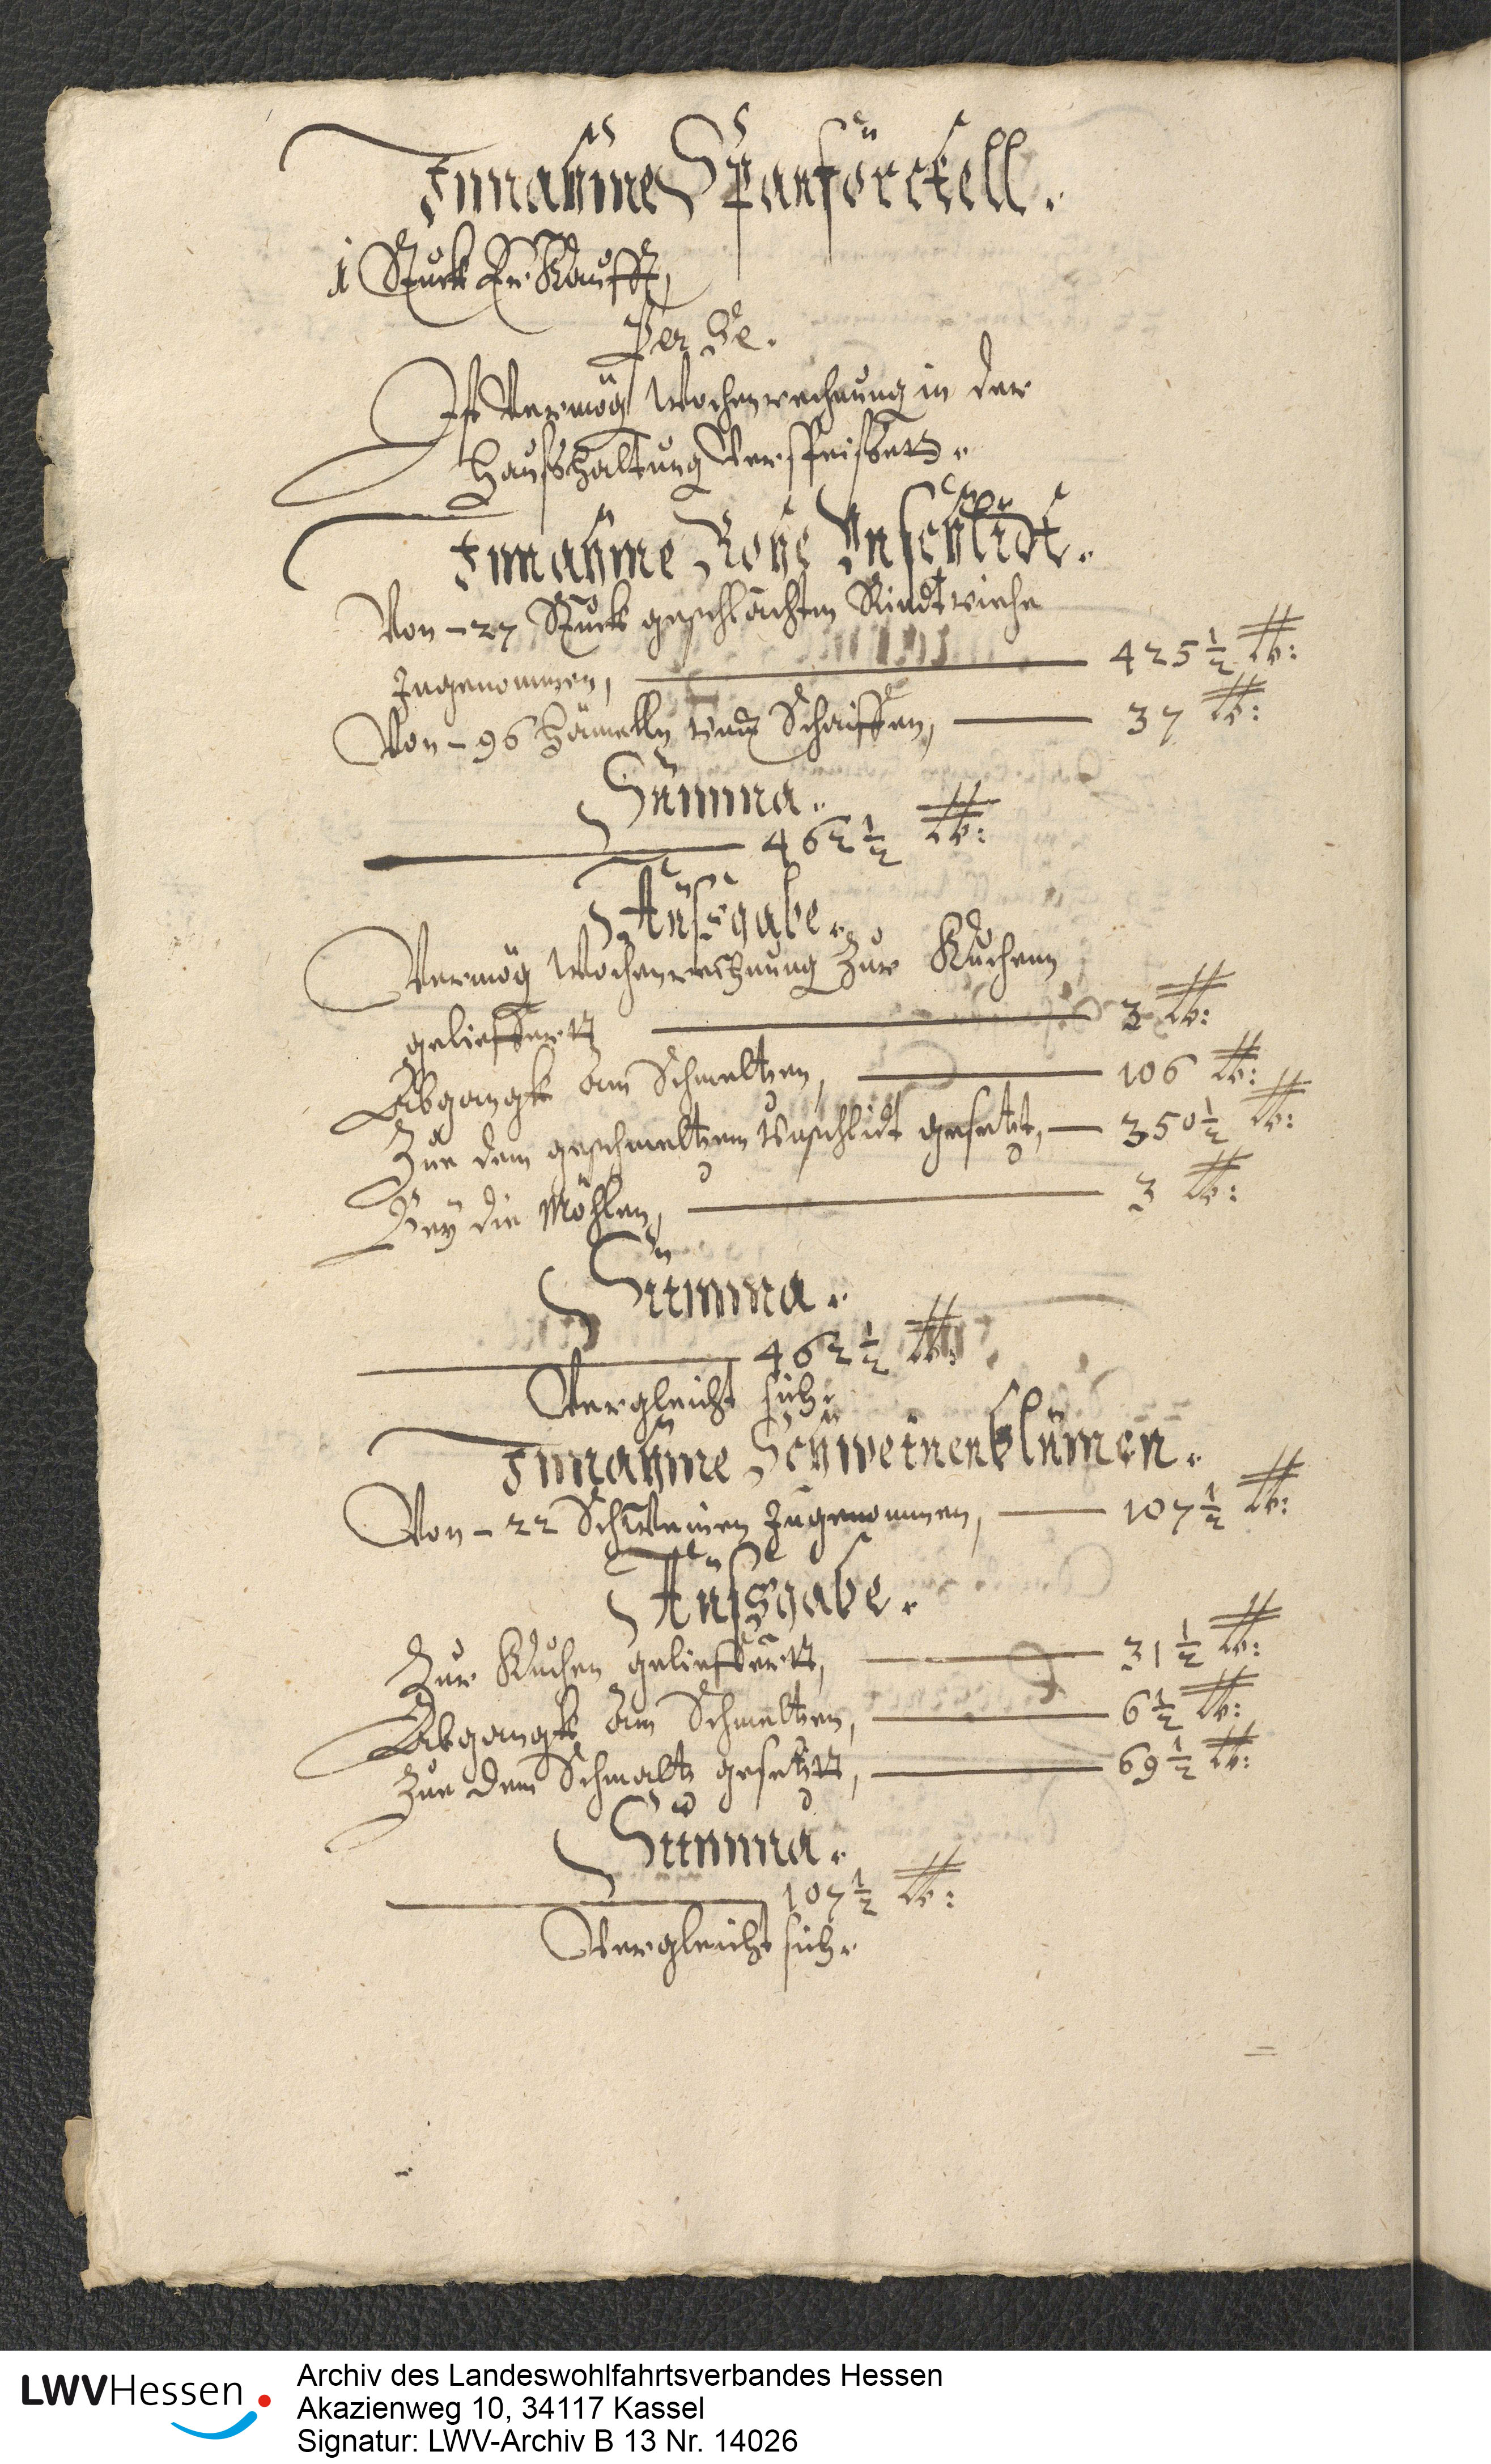 Innahme Spanförckell.
1 Stuck Er Kaufft,
Per Se.
Ist Vermög Wochenrechnung in der
Haußhaltung Verspeißett.
Innahme Rohe Unschlidt.
Von - 27 Stuck geschlachten Rindtviehe
Ingenommen, 425 1/2 lb:
Von - 96 Hämelln undt Schaiffen, 37 lb:
Summa.
462 1/2 lb:
Außgabe.
Vermög Wochenrechnung Zur Kuchenn
gelieffertt 3 lb:
Abgangk am Schmeltzen, 106 lb:
Zue dem geschmeltzem Unschlidt gesetzt, 350 1/2 lb:
Bey die Möhlen, 3 lb:
Summa.
462 1/2 lb:
Vergleicht sich.
Innahme Schweinenblumen.
Von - 22 Schweinen Ingenommen, 107 1/2 lb:
Außgabe.
Zur Kuchen gelieffertt, 31 1/2 lb:
Abgangk am Schmeltzen, 6 1/2 lb:
Zue dem Schmaltz gesetztt, 69 1/2 lb:
Summa.
107 1/2 lb:
Vergleicht sich.
LWVHessen
Archiv des Landeswohlfahrtsverbandes Hessen
Akazienweg 10, 34117 Kassel
Signatur: LWV-Archiv B 13 Nr. 14026